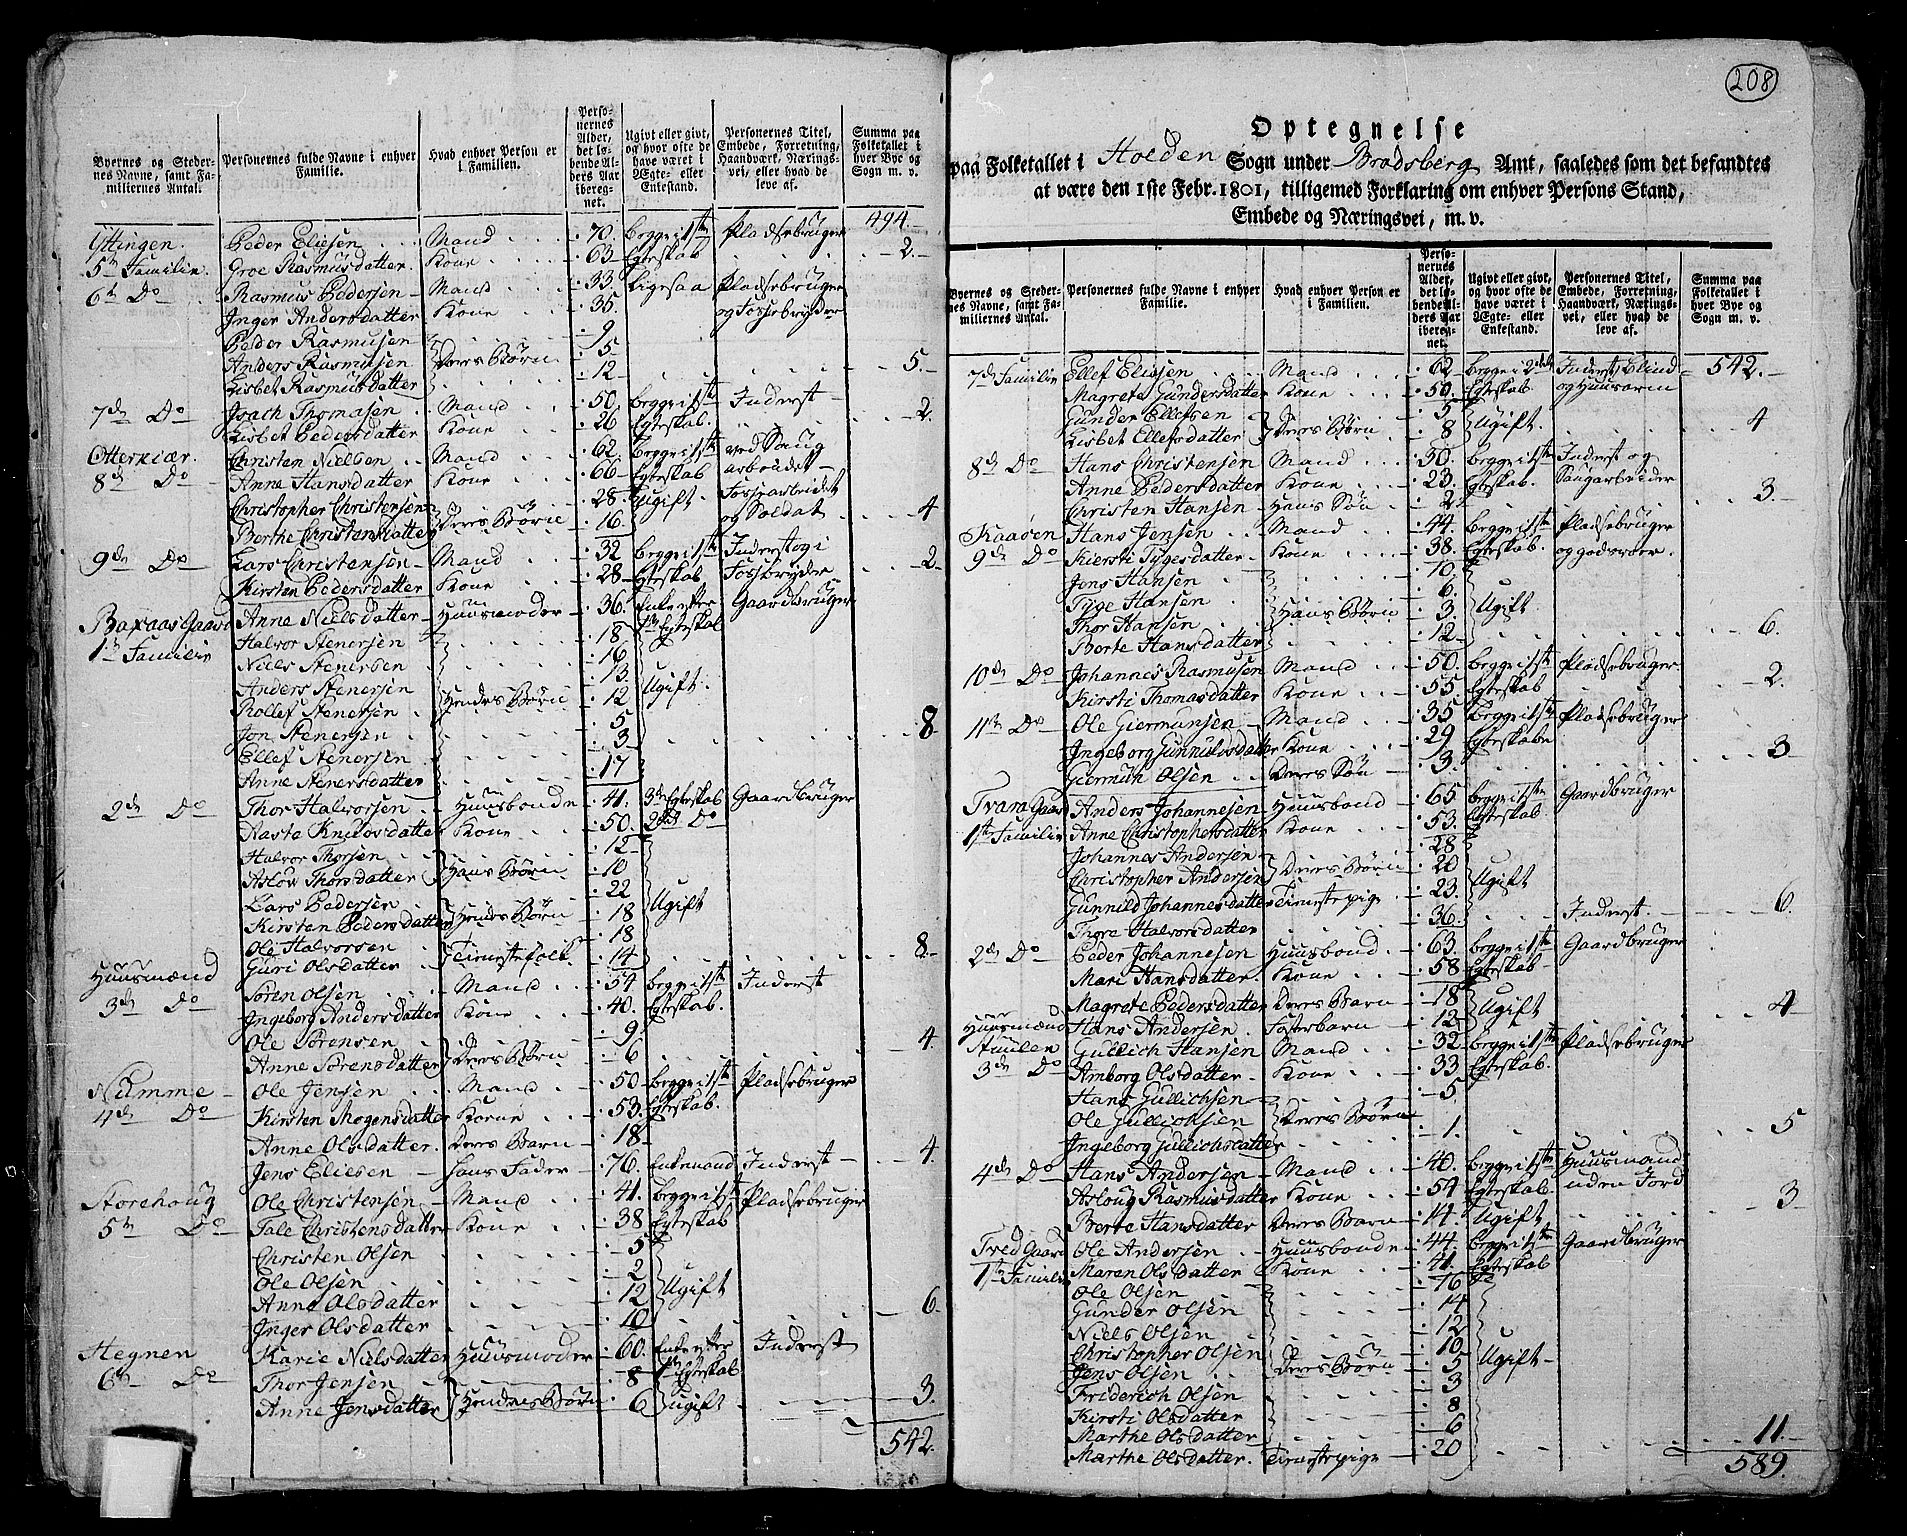 Byernes og Stedernes Navne, samt Familiernes Antal.
Personernes fulde Navne i enhver Familie.
Hvad enhver Person er i Familien.
Personernes Alder, det løbende Alders Aar iberegnet.
Ugivt eller givt, og hvor ofte de have været i Ægte- eller Enkestand.
Personernes Titel, Embede, Forretning, Haandværk, Næringsvei, eller hvad de leve af.
Summa paa Folketallet i hver Bye og Sogn m. v.
494.
Peder Eliesen Mand 70. begge i 1ste Pladsebruger
5te Familie. Groe Rasmusdatter. Kone 63 Egteskab 2.
6te Do Rasmus Pedersen Mand 33 Ligesaa Pladsebruger
Inger Andersdatter Kone 35. og Fossebryder
Peder Rasmusen 9
Anders Rasmusen deres Børn 5
Lisbet Rasmusdatter 12 5.
7de Do Joach Thomasen Mand 50. begge i 1ste Inderst
Lisbet Pedersdatter Kone 26 Egteskab. 2.
Otterkiær. Christen Nielsen Mand 62. begge i 1ste ved Saug
8de Do Anne Hansdatter Kone 66 Egteskab arbeidet
Christopher Christensen 28. Ugift. Fossearbeidet
Berthe Christensdatter deres Børn 16. og Soldat 4
9de Do Lars Christensen Mand 32 begge i 1ste Inderst og
Kirsten Pedersdatter Kone 28 Egteskab Fossbryder 2.
Baxaas Gaard Anne Nielsdatter Huusmoder 36. Enke efter Gaardbruger
1ste Familie Halvor Stenersen 18 1ste Egteskab
Niels Stenersen 16
Anders Stenersen 13.
Rollef Stenersen Hendes Børn 12 Ugift.
Jon Stenersen 5
Ellef Stenersen 3
Anne Stenersdatter 17 8
2den Do Thor Halvorsen Huusbonde 41. 3die Egteskab Gaardbruger
Aaste Knudsdatter Kone 50. 2det Do
Halvor Thorsen 12
Aslow Thorsdatter Hans Børn 10
Lars Pedersen 22
Kirsten Pedersdatter Hendes Børn 18 Ugift
Ole Halvorsen 18
Guri Olsdatter Tienestefolk. 14 8.
Huusmænd
3de Do Søren Olsen Mand 54 begge i 1ste Inderst
Ingeborg Andersdatter Kone 40. Egteskab.
Ole Sørensen 9
Anne Sørensdatter deres Børn 6 4.
Numme Ole Jensen Mand 50 begge i 1ste Pladsebruger
4de Do Kirsten Mogensdatter Kone 53. Egteskab.
Anne Olsdatter. deres Barn 18
Jens Eliesen hans Fader 76. Enkemand Inderst 4.
Storehoug Ole Christensen Mand 41. begge i 1ste Pladsebruger
5te Do Tale Christensdatter Kone 38 Egteskab
Christen Olsen 5
Ole Olsen 2
Anne Olsdatter 12 Ugift
Inger Olsdatter 10 6
Hegnen Karie Nielsdatter Huusmoder 60. Enke efter Inderst
6te Do Thor Jensen 8 1ste Egteskab
Anne Jensdatter Hendes Børn 6 Ugift 3.
542.
208
Optegnelse
paa Folketallet i Holden Sogn under Bradsberg Amt, saaledes som det befandtes
at være den 1ste Febr. 1801, tilligemed Forklaring om enhver Persons Stand,
Embede og Næringsvei, m. v.
Byernes og Stedernes Navne, samt Familiernes Antal.
Personernes fulde Navne i enhver Familie.
Hvad enhver Person er i Familien.
Personernes Alder, det løbende Alders Aar iberegnet.
Ugivt eller givt, og hvor ofte de have været i Ægte- eller Enkestand.
Personernes Titel, Embede, Forretning, Haandværk, Næringsvei, eller hvad de leve af.
Summa paa Folketallet i hver Bye og Sogn m. v.
7de Familie Ellef Eliesen Mand 62 begge i 2det Inderst, Blind 542.
Magrete Gundersdatter Kone 50. Egteskab og Huusarm
Gunder Ellefsen 5
Lisbet Ellefsdatter deres Børn 8 Ugift. 4
8de Do Hans Christensen Mand 30. begge i 1ste Inderst og
Anne Pedersdatter Kone 23. Egteskab. Saugarbeider
Christen Hansen Hans Søn 2 3.
Kaasen Hans Jensen Mand 44. begge i 1ste Pladsebruger
9de Do Kiersti Tygesdatter Kone 38. Egteskab.
Jens Hansen 10.
Tyge Hansen 6.
Thor Hansen Hans Børn 3. Ugift
Berte Hansdatter 12 6.
10de Do Johannes Rasmusen Mand 50. begge i 1ste Pladsebruger
Kirsti Thomasdatter Kone 55. Egteskab 2.
11te Do Ole Giermunsen Mand 35 begge i 1ste Pladsebruger
Ingeborg Gunnulvsdatter Kone 29 Egteskab
Giermun Olsen deres Søn 3. 3
Tvara Gaard Anders Johannesen Huusbond 65 begge i 1ste Gaardbruger
1ste Familie Anne Christophersdatter Kone 53. Egteskab.
Johannes Andersen 28
Christopher Andersen deres Børn 20
Gunnild Johannesdatter Tienestepige 23. Ugift
Thore Halvorsdatter 36. Inderst. 6.
2den Do Peder Johannesen Huusbond 63. begge i 1ste Gaardbruger
Mari Hansdatter Kone 58 Egteskab
Magrete Pedersdatter deres Barn 18 Ugift
Huusmænd Hans Andersen. Fosterbarn 12 4
Gullich Hansen Mand 32 begge i 1ste Pladsebruger
3de Do Amborg Olsdatter Kone 33 Egteskab.
Hans Gullichsen 5
Ole Gullichsen deres Børn
Ingeborg Gullichsdatter 1. 5
4de Do Hans Andersen Mand 40. begge i 1ste Huusmand
Asloug Rasmusdatter Kone 54 Egteskab. uden Jord
Berte Hansdatter deres Barn 14. Ugift 3
Tved Gaard Ole Andersen Huusbonde 44. begge i 1ste Gaardbruger
1ste Familie Maren Olsdatter Kone 41. Egteskab
Ole Olsen 16
Gunder Olsen 14
Niels Olsen 12
Christopher Olsen 10
Jens Olsen deres Børn 5 Ugift
Friderich Olsen 3
Kirsti Olsdatter 8
Marthe Olsdatter 6
Marthe Olsdatter. Tienestepige 20 11.
589.